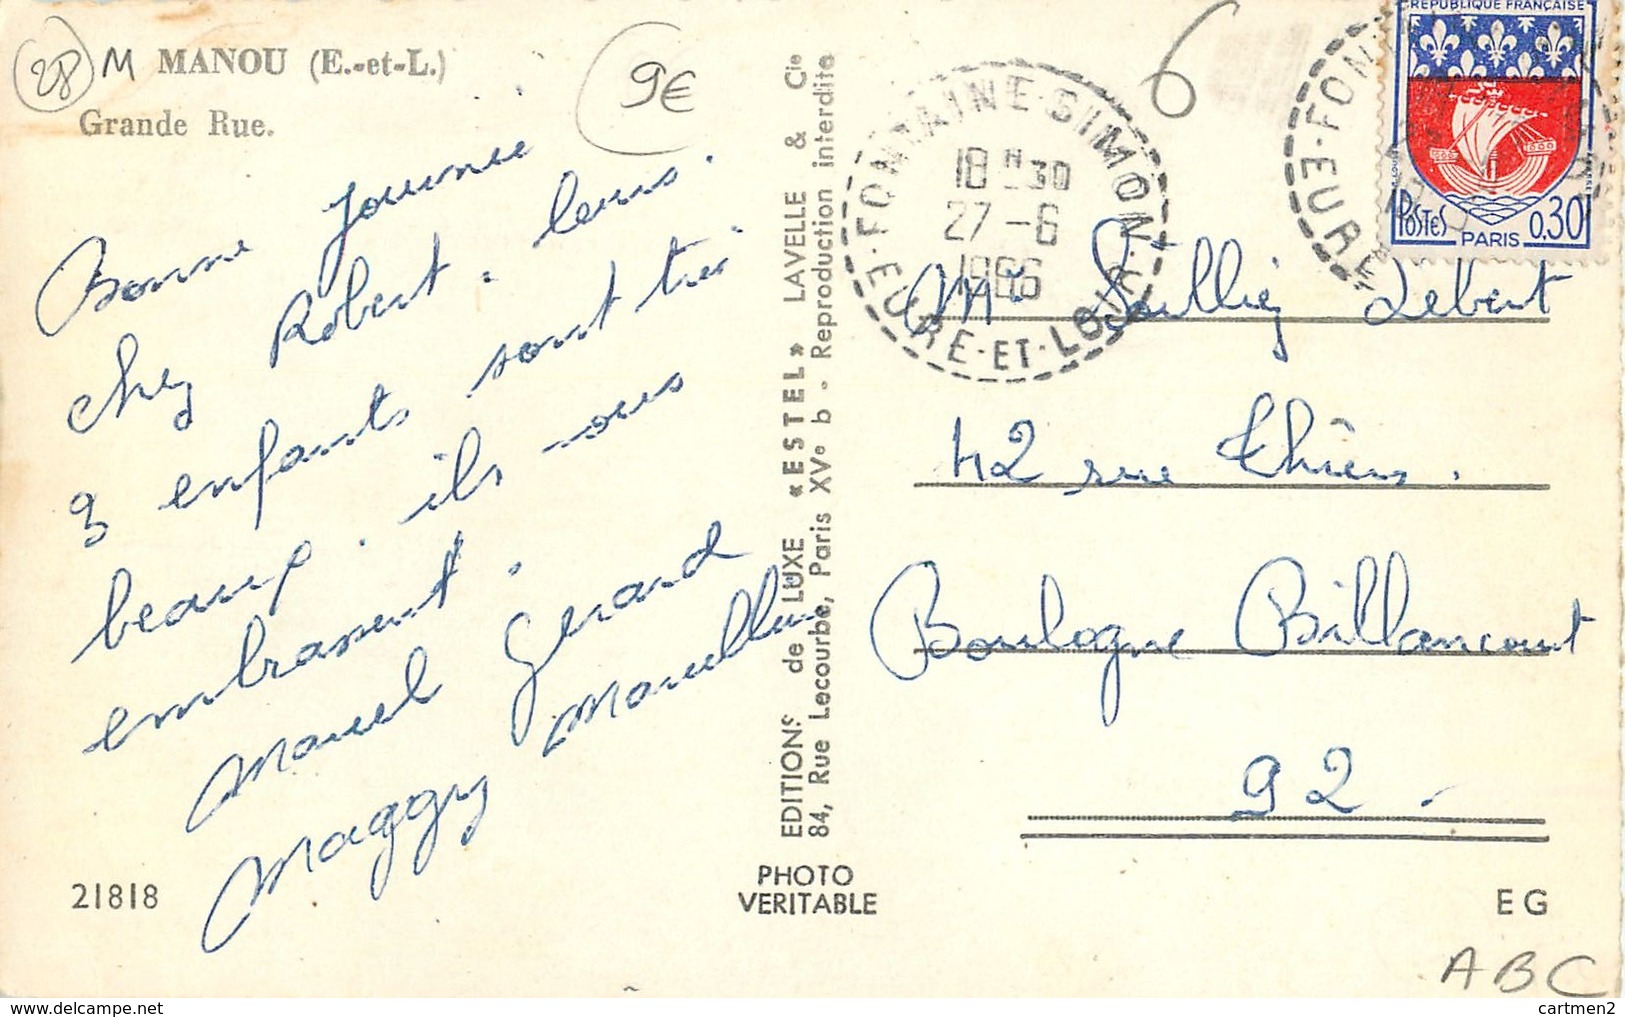 28 M MANOU (E.-et-L.)
Grande Rue.
9€
6
Bonne journée
chez Robert. leurs
3 enfants sont très
beaux. ils vous
embrassent.
Marcel Gerard
Maggy Marcelline
21818
EDITIONS de LUXE «ESTEL» LAVELLE & Cie
84, Rue Lecourbe, Paris XVe b - Reproduction interdite
PHOTO
VERITABLE
FONTAINE-SIMON
18H30
27-6
1966
EURE-ET-LOIR
REPUBLIQUE FRANÇAISE
POSTES
PARIS
0,30
FONT
EURE
Mr Soulliez Lebert
42 rue Thiers.
Boulogne Billancourt
92
EG
ABC
cartmen2